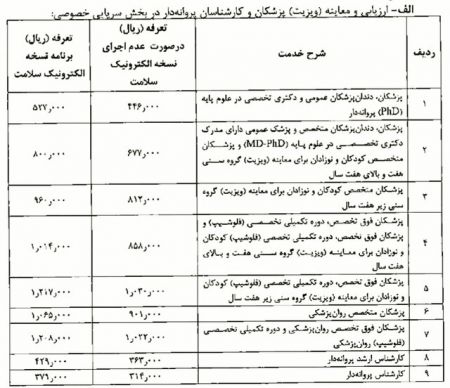 الف- ارزیابی و معاینه (ویزیت) پزشکان و کارشناسان پروانه‌دار در بخش سرپایی خصوصی:
ردیف
شرح خدمت
تعرفه (ریال)
درصورت عدم اجرای
نسخه الکترونیک
سلامت
تعرفه (ریال)
برنامه نسخه
الکترونیک سلامت
۱
پزشکان، دندان‌پزشکان عمومی و دکتری تخصصی در علوم پایه
(PhD) پروانه‌دار
۴۴۶٫۰۰۰
۵۲۷٫۰۰۰
۲
پزشکان، دندان‌پزشکان متخصص و پزشک عمومی دارای مدرک
دکتری تخصصی در علوم پایه (MD-PhD) و پزشکان
متخصص کودکان و نوزادان برای معاینه (ویزیت) گروه سنی
هفت و بالای هفت سال
۶۷۷٫۰۰۰
۸۰۰٫۰۰۰
۳
پزشکان متخصص کودکان و نوزادان برای معاینه (ویزیت) گروه
سنی زیر هفت سال
۸۱۲٫۰۰۰
۹۶۰٫۰۰۰
۴
پزشکان فوق تخصص، دوره تکمیلی تخصصی (فلوشیپ) و
پزشکان فوق تخصص، دوره تکمیلی تخصصی (فلوشیپ) کودکان
و نوزادان برای معاینه (ویزیت) گروه سنی هفت و بالای
هفت سال
۸۵۸٫۰۰۰
۱٫۰۱۴٫۰۰۰
۵
پزشکان فوق تخصص، دوره تکمیلی تخصصی (فلوشیپ) کودکان
و نوزادان برای معاینه (ویزیت) گروه سنی زیر هفت سال
۱٫۰۳۰٫۰۰۰
۱٫۲۱۷٫۰۰۰
۶
پزشکان متخصص روان‌پزشکی
۹۰۱٫۰۰۰
۱٫۰۶۵٫۰۰۰
۷
پزشکان فوق تخصص روان‌پزشکی و دوره تکمیلی تخصصی
(فلوشیپ) روان‌پزشکی
۱٫۰۲۲٫۰۰۰
۱٫۲۰۸٫۰۰۰
۸
کارشناس ارشد پروانه‌دار
۳۶۳٫۰۰۰
۴۲۹٫۰۰۰
۹
کارشناس پروانه‌دار
۳۱۴٫۰۰۰
۳۷۱٫۰۰۰